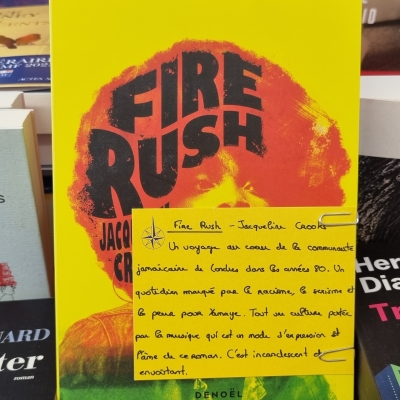 FIRE
RUSH
JACQU
CR
Fire Rush - Jacqueline Crooks
Un voyage au coeur de la communauté
jamaïcaine de Londres dans les années 80. Un
quotidien marqué par le racisme, le sexisme et
la peur pour Yamaye. Tout une culture portée
par la musique qui est un mode d'expression et
l'âme de ce roman. C'est incandescent et
envoûtant.
DENOËL
ÉRAIRE
UARD
ter
roman
Her
Dia
Tr